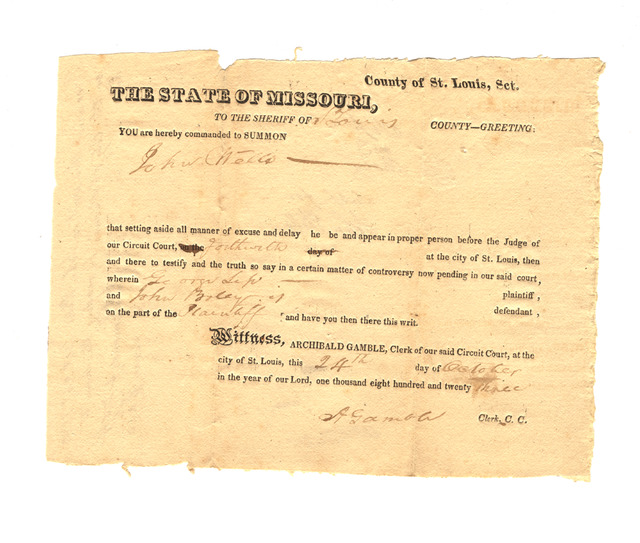 County of St. Louis, Sct.
THE STATE OF MISSOURI,
TO THE SHERIFF OF St Louis COUNTY—GREETING:
YOU are hereby commanded to SUMMON
John Wells
that setting aside all manner of excuse and delay he be and appear in proper person before the Judge of
our Circuit Court, on the forthwith day of at the city of St. Louis, then
and there to testify and the truth so say in a certain matter of controversy now pending in our said court,
wherein plaintiff,
and John defendant,
on the part of the Plaintiff and have you then there this writ.
Witness, ARCHIBALD GAMBLE, Clerk of our said Circuit Court, at the
city of St. Louis, this 24th day of October
in the year of our Lord, one thousand eight hundred and twenty three
A Gamble Clerk, C. C.